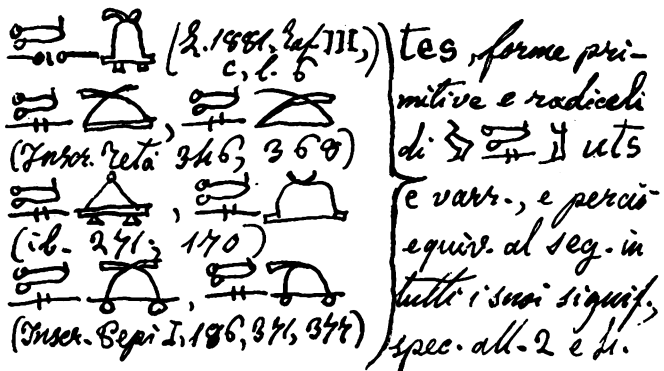 (Z. 1881, Taf. III,)
c, l. 6
(Inscr. Tetà 346, 368)
(ib. 271; 170)
(Inscr. Pepi I, 186, 371, 377)
tes, forme pri-
mitive e radicali
di uts
e varr., e perciò
equiv. al seg. in
tutti i suoi signif.,
spec. all. 2 e